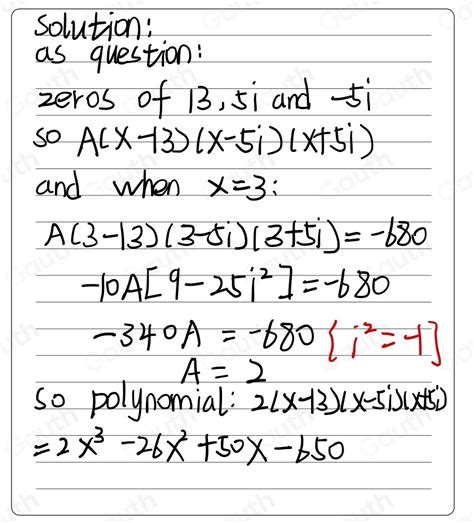 Solution:
as question:
zeros of 13, 5i and -5i
so A(x-13)(x-5i)(x+5i)
and when x=3:
A(3-13)(3-5i)(3+5i)=-680
-10A[9-25i²]=-680
-340A = -680 {i²=-1}
A = 2
So polynomial: 2(x-13)(x-5i)(x+5i)
=2x³-26x²+50x-650